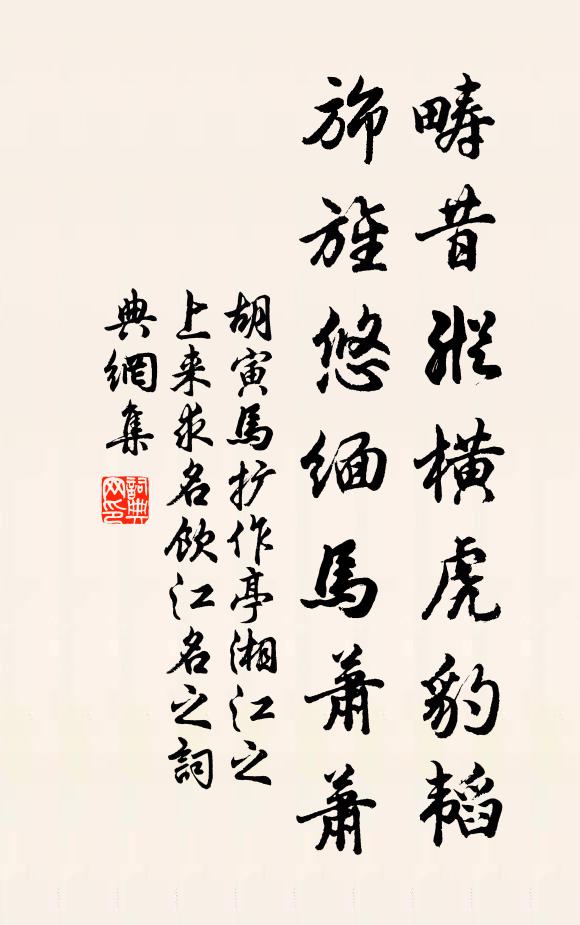 疇昔縱橫虎豹韜
旆旌悠緬馬蕭蕭
胡寅馬扩作亭湘江之
上来求名飲江名之詞
典網集
詞典
网印